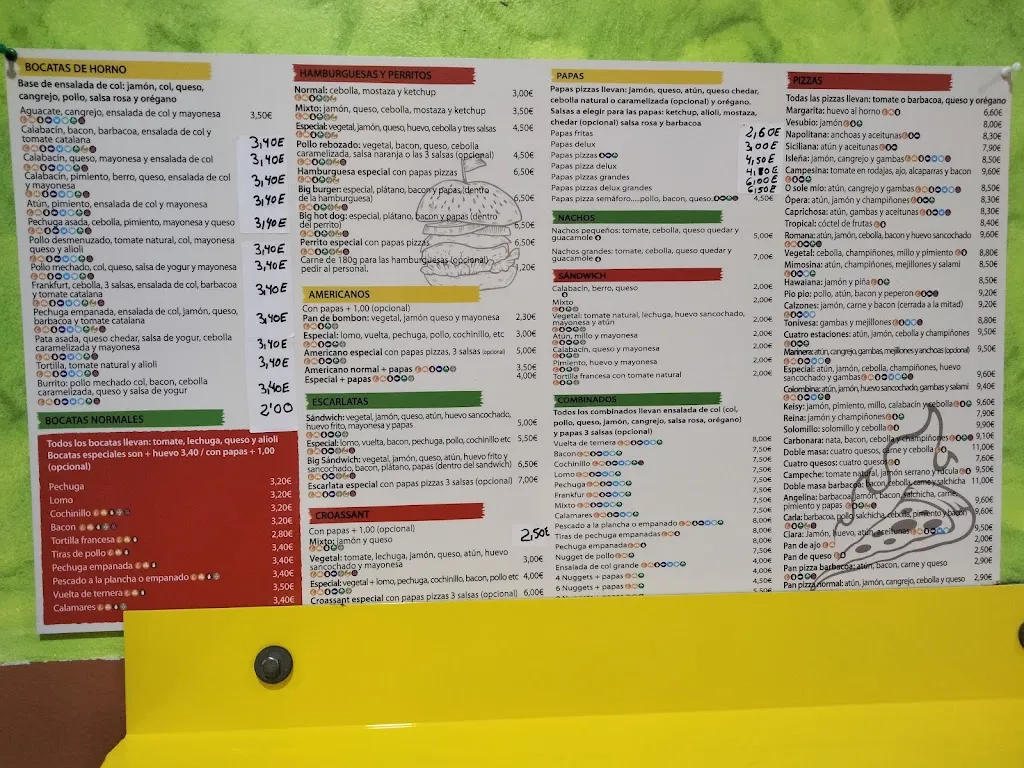 BOCATAS DE HORNO
Base de ensalada de col: jamón, col, queso,
cangrejo, pollo, salsa rosa y orégano
Aguacate, cangrejo, ensalada de col y mayonesa 3,50€
Calabacín, bacon, barbacoa, ensalada de col y
tomate catalana 3,40E
Calabacín, queso, mayonesa y ensalada de col 3,40E
Calabacín, pimiento, berro, queso, ensalada de col
y mayonesa 3,40E
Atún, pimiento, ensalada de col y mayonesa 3,40E
Pechuga asada, cebolla, pimiento, mayonesa y queso 3,40E
Pollo desmenuzado, tomate natural, col, mayonesa
queso y alioli 3,40E
Pollo mechado, col, queso, salsa de yogur y mayonesa 3,40E
Frankfurt, cebolla, 3 salsas, ensalada de col, barbacoa
y tomate catalana 3,40E
Pechuga empanada, ensalada de col, jamón, queso,
barbacoa y tomate catalana 3,40E
Pata asada, queso chedar, salsa de yogur, cebolla
caramelizada y mayonesa 3,40E
Tortilla, tomate natural y alioli 3,40E
Burrito: pollo mechado col, bacon, cebolla
caramelizada, queso y salsa de yogur 3,40E
2'00
BOCATAS NORMALES
Todos los bocatas llevan: tomate, lechuga, queso y alioli
Bocatas especiales son + huevo 3,40 / con papas + 1,00
(opcional)
Pechuga 3,20€
Lomo 3,20€
Cochinillo 3,20€
Bacon 3,20€
Tortilla francesa 2,80€
Tiras de pollo 3,40€
Pechuga empanada 3,40€
Pescado a la plancha o empanado 3,40€
Vuelta de ternera 3,50€
Calamares 3,40€
HAMBURGUESAS Y PERRITOS
Normal: cebolla, mostaza y ketchup 3,00€
Mixto: jamón, queso, cebolla, mostaza y ketchup 3,50€
Especial: vegetal, jamón, queso, huevo, cebolla y tres salsas 4,50€
Pollo rebozado: vegetal, bacon, queso, cebolla
caramelizada, salsa naranja o las 3 salsas (opcional) 4,50€
Hamburguesa especial con papas pizzas 6,50€
Big burger: especial, plátano, bacon y papas (dentro
de la hamburguesa) 6,50€
Big hot dog: especial, plátano, bacon y papas (dentro
del perrito) 6,50€
Perrito especial con papas pizzas 6,50€
Carne de 180g para las hamburguesas (opcional)
pedir al personal. 1,20€
AMERICANOS
Con papas + 1,00 (opcional)
Pan de bombon: vegetal, jamón queso y mayonesa 2,30€
Especial: lomo, vuelta, pechuga, pollo, cochinillo, etc 3,00€
Americano especial con papas pizzas, 3 salsas (opcional) 5,00€
Americano normal + papas 3,50€
Especial + papas 4,00€
ESCARLATAS
Sándwich: vegetal, jamón, queso, atún, huevo sancochado,
huevo frito, mayonesa y papas 5,00€
Especial: lomo, vuelta, bacon, pechuga, pollo, cochinillo etc 5,50€
Big Sándwich: vegetal, jamón, queso, atún, huevo frito y
sancochado, bacon, plátano, papas (dentro del sandwich) 6,50€
Escarlata especial con papas pizzas 3 salsas (opcional) 7,00€
CROASSANT
Con papas + 1,00 (opcional)
Mixto: jamón y queso 2,50E
Vegetal: tomate, lechuga, jamón, queso, atún, huevo
sancochado y mayonesa 3,00€
Especial: vegetal + lomo, pechuga, cochinillo, bacon, pollo etc 4,00€
Croassant especial con papas pizzas 3 salsas (opcional) 6,00€
PAPAS
Papas pizzas llevan: jamón, queso, atún, queso chedar,
cebolla natural o caramelizada (opcional) y orégano.
Salsas a elegir para las papas: ketchup, alioli, mostaza,
chedar (opcional) salsa rosa y barbacoa
Papas fritas 2,60E
Papas delux 3,00E
Papas pizzas 4,50E
Papas pizza delux 4,80E
Papas pizzas grandes 6,00E
Papas pizzas delux grandes 6,50E
Papas pizza semáforo....pollo, bacon, queso 4,50€
NACHOS
Nachos pequeños: tomate, cebolla, queso quedar y
guacamole 5,00€
Nachos grandes: tomate, cebolla, queso quedar y
guacamole 7,00€
SÁNDWICH
Calabacín, berro, queso 2,00€
Mixto 2,00€
Vegetal: tomate natural, lechuga, huevo sancochado,
mayonesa y atún 2,00€
Atún, millo y mayonesa 2,00€
Calabacín, queso y mayonesa 2,00€
Pimiento, huevo y mayonesa 2,00€
Tortilla francesa con tomate natural 2,00€
COMBINADOS
Todos los combinados llevan ensalada de col (col,
pollo, queso, jamón, cangrejo, salsa rosa, orégano)
y papas pizzas 3 salsas (opcional)
Vuelta de ternera 8,00€
Bacon 7,50€
Cochinillo 7,50€
Lomo 7,50€
Pechuga 7,50€
Frankfur 7,50€
Mixto 7,50€
Calamares 7,50€
Pescado a la plancha o empanado 8,00€
Tiras de pechuga empanadas 8,00€
Pechuga empanada 8,00€
Nugget de pollo 7,50€
Ensalada de col grande 4,00€
4 Nuggets + papas 4,50€
6 Nuggets + papas 5,50€
PIZZAS
Todas las pizzas llevan: tomate o barbacoa, queso y orégano
Margarita: huevo al horno 6,60€
Vesubio: jamón 8,00€
Napolitana: anchoas y aceitunas 8,30€
Siciliana: atún y aceitunas 7,90€
Isleña: jamón, cangrejo y gambas 8,50€
Campesina: tomate en rodajas, ajo, alcaparras y bacon 9,60€
O sole mío: atún, cangrejo y gambas 8,50€
Ópera: atún, jamón y champiñones 8,30€
Caprichosa: atún, gambas y aceitunas 8,30€
Tropical: cóctel de frutas 8,40€
Romana: atún, jamón, cebolla, bacon y huevo sancochado 9,60€
Vegetal: cebolla, champiñones, millo y pimiento 8,80€
Mimosina: atún, champiñones, mejillones y salami 8,50€
Hawaiana: jamón y piña 8,50€
Pio pio: pollo, atún, bacon y peperon 9,20€
Calzones: jamón, carne y bacon (cerrada a la mitad) 9,20€
Tonivesa: gambas y mejillones 8,80€
Cuatro estaciones: atún, jamón, cebolla y champiñones 9,50€
Marinera: atún, cangrejo, gambas, mejillones y anchoas (opcional) 9,50€
Especial: atún, jamón, cebolla, champiñones, huevo
sancochado y gambas 9,60€
Colombina: atún, jamón, huevo sancochado, gambas y salami 9,40€
Keisy: jamón, pimiento, millo, calabacín y cebolla 9,60€
Reina: jamón y champiñones 7,90€
Solomillo: solomillo y cebolla 9,90€
Carbonara: nata, bacon, cebolla y champiñones 9,10€
Doble masa: cuatro quesos, carne y cebolla 11,00€
Cuatro quesos: cuatro quesos 7,60€
Campeche: tomate natural, jamón serrano y rúcula 9,50€
Doble masa barbacoa: bacon, cebolla, carne y salchicha 11,00€
Angelina: barbacoa, jamón, bacon, salchicha, carne,
pimiento y papas 9,60€
Carla: barbacoa, pollo, salchicha, cebolla, pimiento y bacon 9,60€
Clara: Jamón, huevo, atún, aceitunas 9,50€
Pan de ajo 2,00€
Pan de queso 2,50€
Pan pizza barbacoa: atún, bacon, carne y queso 2,90€
Pan pizza normal: atún, jamón, cangrejo, cebolla y queso 2,90€